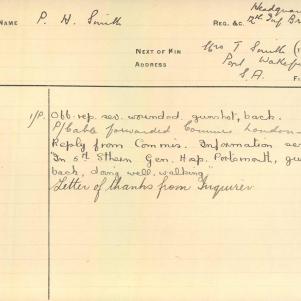 Headqua
NAME P. H. Smith REG. &C. 12th Inf Br
NEXT OF KIN Mrs T Smith (
ADDRESS Port Wakef
S.A. F
1/P. Obb. rep. sev. wounded, gunshot, back.
P/Cable forwarded Commis London
Reply from Commis. Information ser
"In 5th Sthern Gen. Hsp. Portsmouth, gu
back, doing well, walking"
Letter of thanks from Inquirer